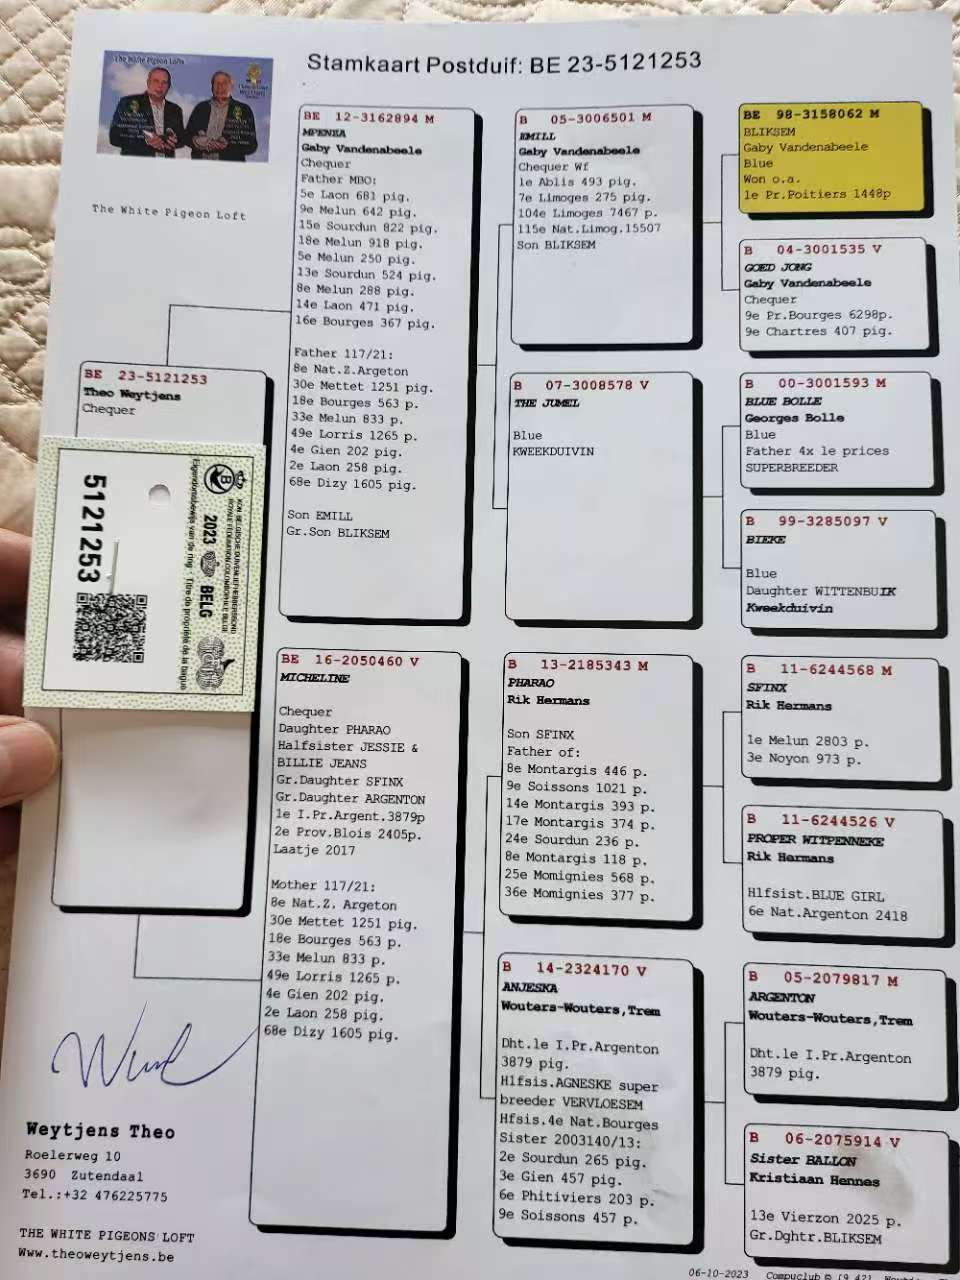 The White Pigeon Loft
Stamkaart Postduif: BE 23-5121253
The White Pigeon Loft
BE 23-5121253
Theo Weytjens
Chequer
5121253
KON. BELGISCHE DUIVENLIEFHEBBERSBOND
ROYALE FÉDÉRATION COLOMBOPHILE BELGE
2023 BELG
Eigendomsbewijs van de ring - Titre de propriété de la bague
BE 12-3162894 M
MPENZA
Gaby Vandenabeele
Chequer
Father MBO:
5e Laon 681 pig.
9e Melun 642 pig.
15e Sourdun 822 pig.
18e Melun 918 pig.
5e Melun 250 pig.
13e Sourdun 524 pig.
8e Melun 288 pig.
14e Laon 471 pig.
16e Bourges 367 pig.
Father 117/21:
8e Nat.Z.Argeton
30e Mettet 1251 pig.
18e Bourges 563 p.
33e Melun 833 p.
49e Lorris 1265 p.
4e Gien 202 pig.
2e Laon 258 pig.
68e Dizy 1605 pig.
Son EMILL
Gr.Son BLIKSEM
BE 16-2050460 V
MICHELINE
Chequer
Daughter PHARAO
Halfsister JESSIE &
BILLIE JEANS
Gr.Daughter SFINX
Gr.Daughter ARGENTON
1e I.Pr.Argent.3879p
2e Prov.Blois 2405p.
Laatje 2017
Mother 117/21:
8e Nat.Z. Argeton
30e Mettet 1251 pig.
18e Bourges 563 p.
33e Melun 833 p.
49e Lorris 1265 p.
4e Gien 202 pig.
2e Laon 258 pig.
68e Dizy 1605 pig.
B 05-3006501 M
EMILL
Gaby Vandenabeele
Chequer Wf
1e Ablis 493 pig.
7e Limoges 275 pig.
104e Limoges 7467 p.
115e Nat.Limog.15507
Son BLIKSEM
B 07-3008578 V
THE JUMEL
Blue
KWEEKDUIVIN
B 13-2185343 M
PHARAO
Rik Hermans
Son SFINX
Father of:
8e Montargis 446 p.
9e Soissons 1021 p.
14e Montargis 393 p.
17e Montargis 374 p.
24e Sourdun 236 p.
8e Montargis 118 p.
25e Momignies 568 p.
36e Momignies 377 p.
B 14-2324170 V
ANJESKA
Wouters-Wouters,Trem
Dht.1e I.Pr.Argenton
3879 pig.
Hlfsis.AGNESKE super
breeder VERVLOESEM
Hfsis.4e Nat.Bourges
Sister 2003140/13:
2e Sourdun 265 pig.
3e Gien 457 pig.
6e Phitiviers 203 p.
9e Soissons 457 p.
BE 98-3158062 M
BLIKSEM
Gaby Vandenabeele
Blue
Won o.a.
1e Pr.Poitiers 1448p
B 04-3001535 V
GOED JONG
Gaby Vandenabeele
Chequer
9e Pr.Bourges 6298p.
9e Chartres 407 pig.
B 00-3001593 M
BLUE BOLLE
Georges Bolle
Blue
Father 4x 1e prices
SUPERBREEDER
B 99-3285097 V
BIEKE
Blue
Daughter WITTENBUIK
Kweekduivin
B 11-6244568 M
SFINX
Rik Hermans
1e Melun 2803 p.
3e Noyon 973 p.
B 11-6244526 V
PROPER WITPENNEKE
Rik Hermans
Hlfsist.BLUE GIRL
6e Nat.Argenton 2418
B 05-2079817 M
ARGENTON
Wouters-Wouters,Trem
Dht.1e I.Pr.Argenton
3879 pig.
B 06-2075914 V
Sister BALLON
Kristiaan Hennes
13e Vierzon 2025 p.
Gr.Dghtr.BLIKSEM
Weytjens Theo
Roelerweg 10
3690 Zutendaal
Tel.:+32 476225775
THE WHITE PIGEONS LOFT
Www.theoweytjens.be
06-10-2023 Compuclub © [9.42]